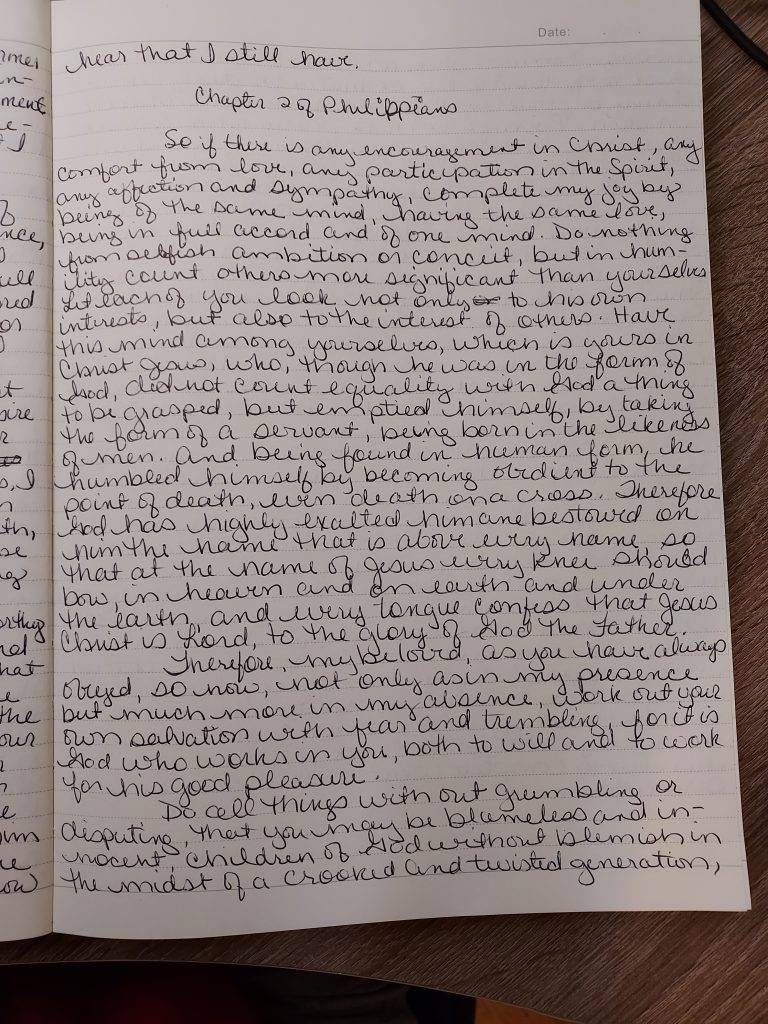 Date:
hear that I still have.
Chapter 2 of Philippians
So if there is any encouragement in Christ, any
comfort from love, any participation in the Spirit,
any affection and sympathy, complete my joy by
being of the same mind, having the same love,
being in full accord and of one mind. Do nothing
from selfish ambition or conceit, but in hum-
ility count others more significant than yourselves
Let each of you look not only to his own
interests, but also to the interest of others. Have
this mind among yourselves, which is yours in
Christ Jesus, who, though he was in the form of
God, did not count equality with God a thing
to be grasped, but emptied himself, by taking
the form of a servant, being born in the likeness
of men. And being found in human form, he
humbled himself by becoming obedient to the
point of death, even death on a cross. Therefore
God has highly exalted him ane bestowed on
him the name that is above every name, so
that at the name of Jesus every knee should
bow, in heaven and on earth and under
the earth, and every tongue confess that Jesus
Christ is Lord, to the glory of God the Father.
Therefore, my beloved, as you have always
obeyed, so now, not only as in my presence
but much more in my absence, work out your
own salvation with fear and trembling, for it is
God who works in you, both to will and to work
for his good pleasure.
Do all things without grumbling or
disputing, that you may be blameless and in-
nocent, children of God without blemish in
the midst of a crooked and twisted generation,